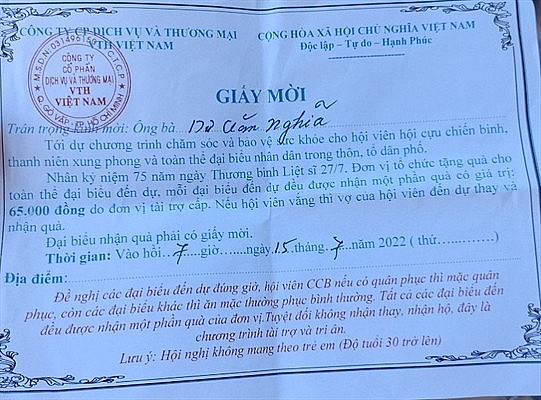 CÔNG TY CP DỊCH VỤ VÀ THƯƠNG MẠI
VTH VIỆT NAM
CỘNG HÒA XÃ HỘI CHỦ NGHĨA VIỆT NAM
Độc lập – Tự do – Hạnh Phúc
CÔNG TY
CỔ PHẦN
DỊCH VỤ VÀ THƯƠNG MẠI
VTH
VIỆT NAM
Q. GÒ VẤP - TP. HỒ CHÍ MINH
GIẤY MỜI
Trân trọng kính mời: Ông bà Dư Văn Nghĩa
Tới dự chương trình chăm sóc và bảo vệ sức khỏe cho hội viên hội cựu chiến binh,
thanh niên xung phong và toàn thể đại biểu nhân dân trong thôn, tổ dân phố.
Nhân kỷ niệm 75 năm ngày Thương binh Liệt sĩ 27/7. Đơn vị tổ chức tặng quà cho
toàn thể đại biểu đến dự, mỗi đại biểu đến dự đều được nhận một phần quà có giá trị:
65.000 đồng do đơn vị tài trợ cấp. Nếu hội viên vắng thì vợ của hội viên đến dự thay và
nhận quà.
Đại biểu nhận quà phải có giấy mời.
Thời gian: Vào hồi..7....giờ......ngày.15.tháng..7...năm 2022 ( thứ.............)
Địa điểm:
Đề nghị các đại biểu đến dự đúng giờ, hội viên CCB nếu có quân phục thì mặc quân
phục, còn các đại biểu khác thì ăn mặc thường phục bình thường. Tất cả các đại biểu đến
đều được nhận một phần quà của đơn vị.Tuyệt đối không nhận thay, nhận hộ, đây là
chương trình tài trợ và tri ân.
Lưu ý: Hội nghị không mang theo trẻ em (Độ tuổi 30 trở lên)